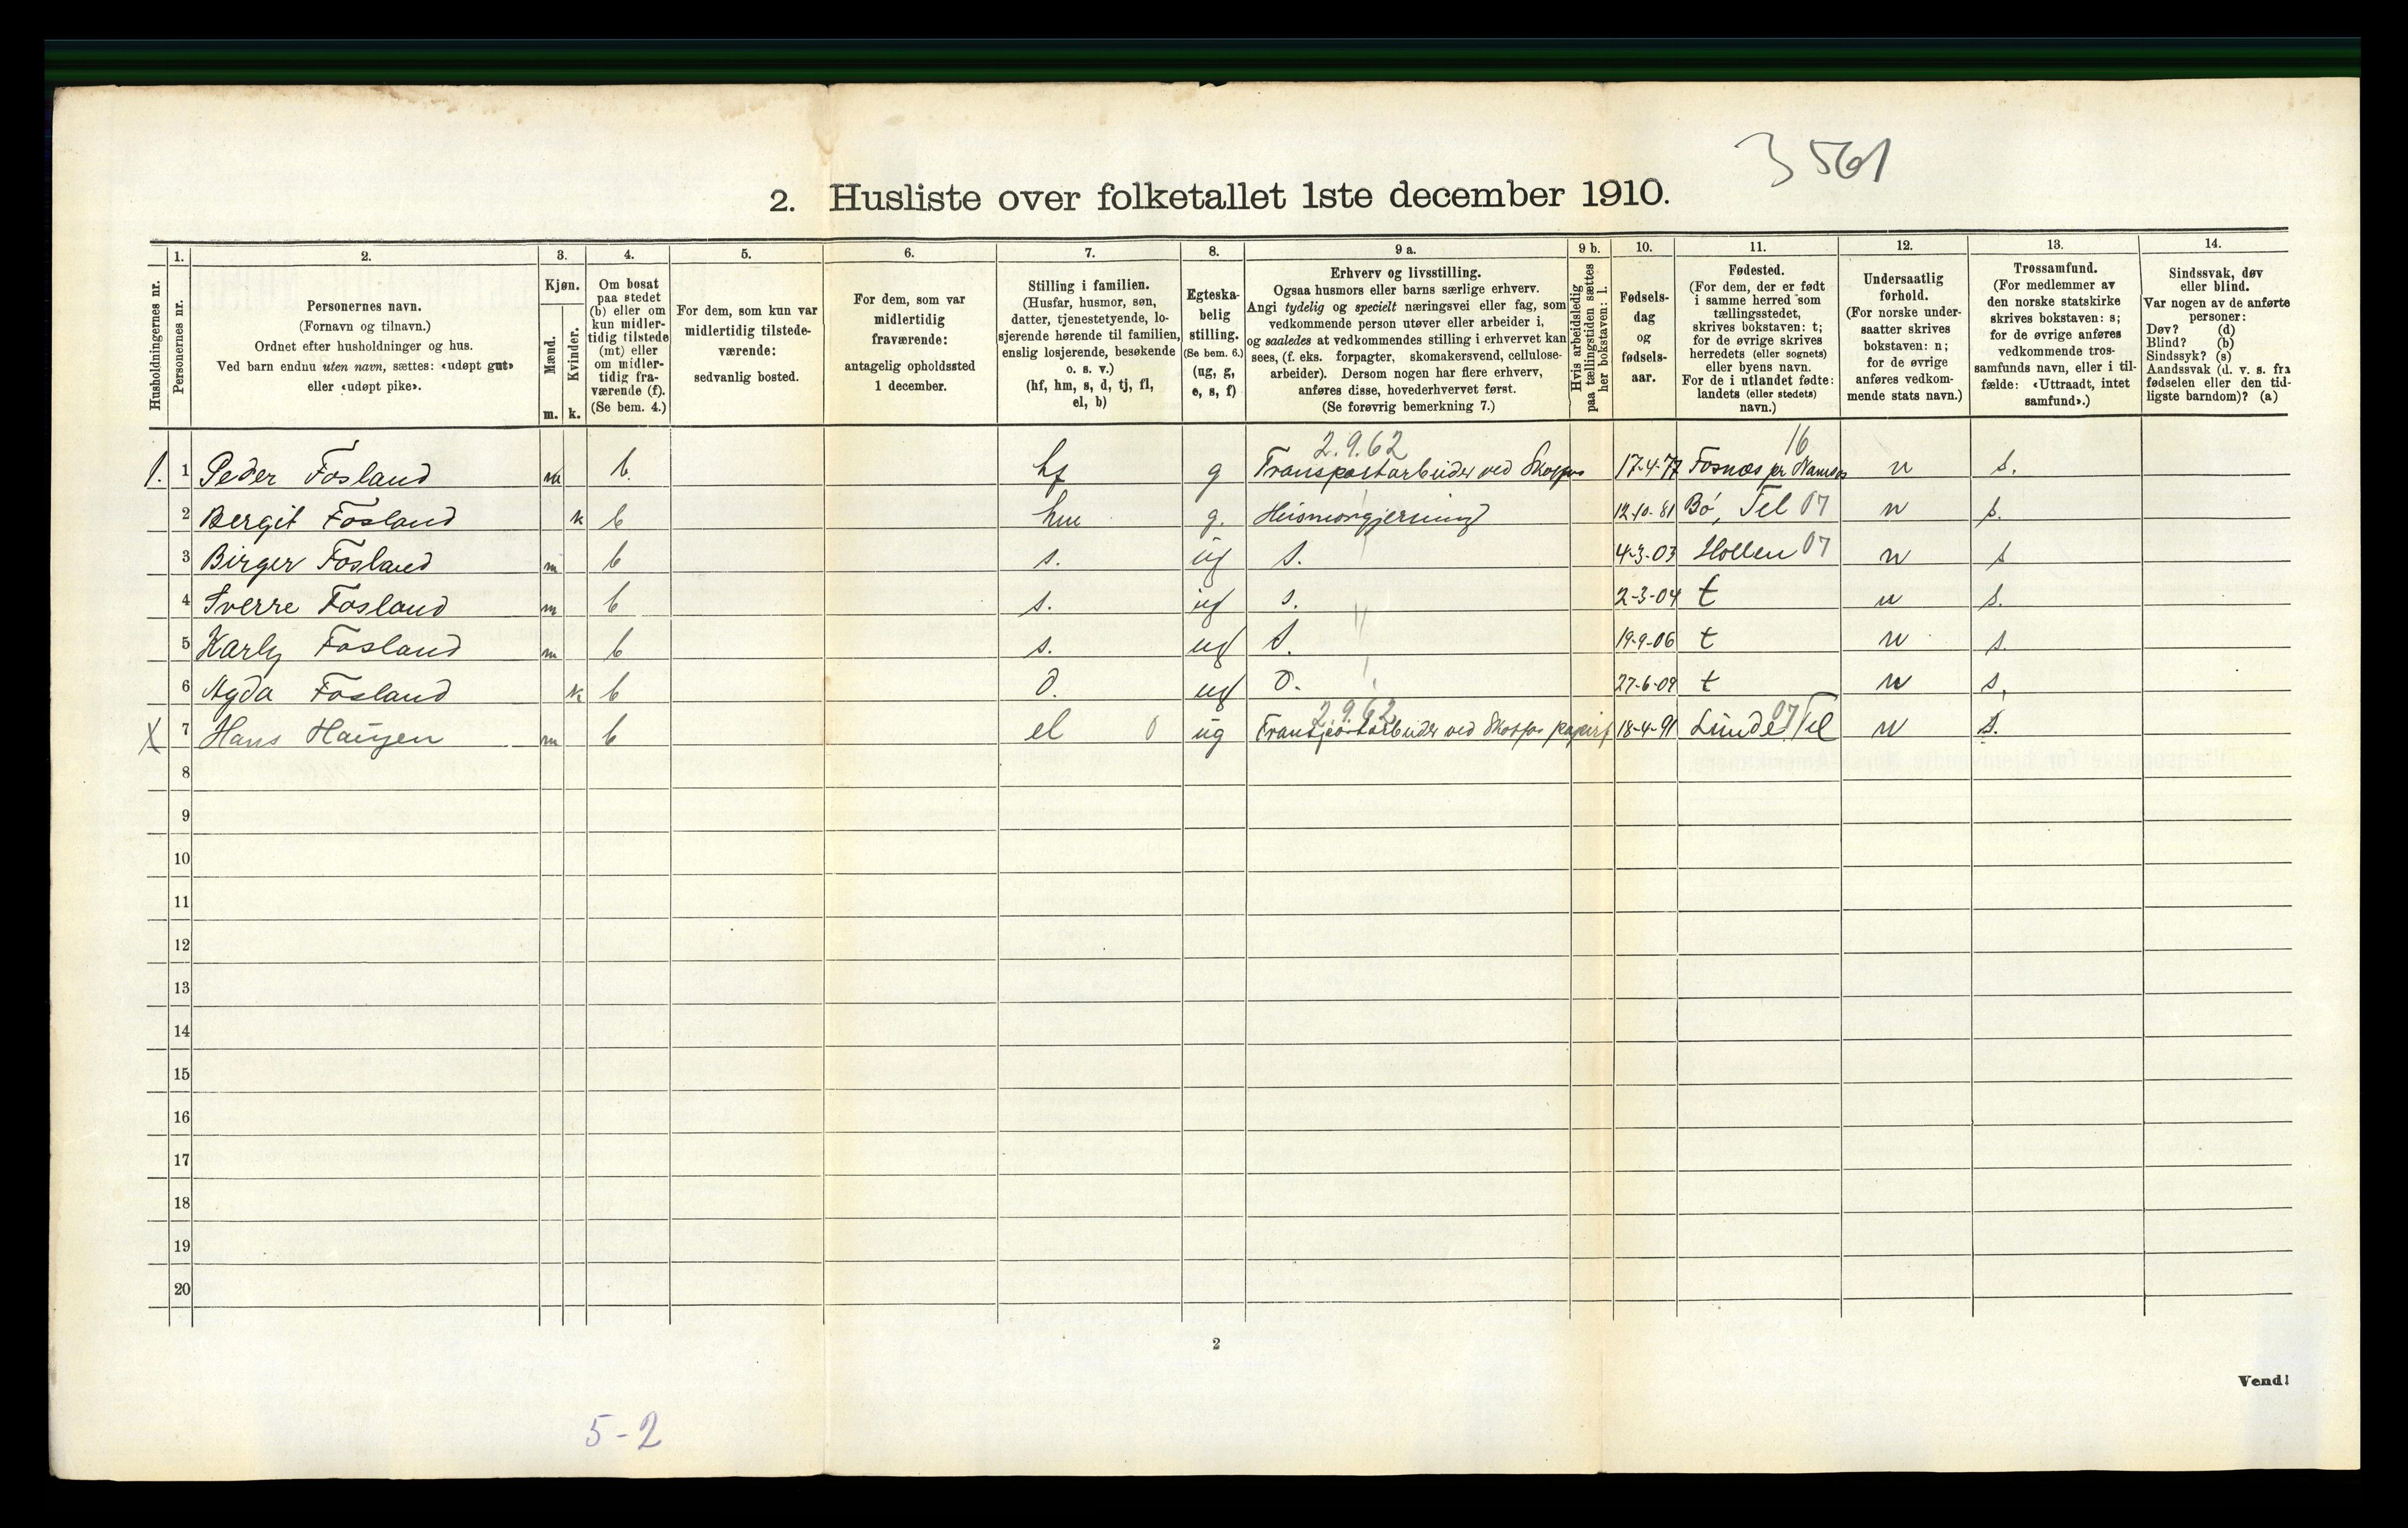 3 561
2. Husliste over folketallet 1ste december 1910.
Husholdningernes nr.
1.
Personernes nr.
2.
Personernes navn.
(Fornavn og tilnavn.)
Ordnet efter husholdninger og hus.
Ved barn endnu uten navn, sættes: «udøpt gut»
eller «udøpt pike».
3.
Kjøn.
Mænd.
Kvinder.
m. k.
4.
Om bosat
paa stedet
(b) eller om
kun midler-
tidig tilstede
(mt) eller
om midler-
tidig fra-
værende (f).
(Se bem. 4.)
5.
For dem, som kun var
midlertidig tilstede-
værende:
sedvanlig bosted.
6.
For dem, som var
midlertidig
fraværende:
antagelig opholdssted
1 december.
7.
Stilling i familien.
(Husfar, husmor, søn,
datter, tjenestetyende, lo-
sjerende hørende til familien,
enslig losjerende, besøkende
o. s. v.)
(hf, hm, s, d, tj, fl,
el, b)
8.
Egteska-
belig
stilling.
(Se bem. 6.)
(ug, g,
e, s, f)
9 a.
Erhverv og livsstilling.
Ogsaa husmors eller barns særlige erhverv.
Angi tydelig og specielt næringsvei eller fag, som
vedkommende person utøver eller arbeider i,
og saaledes at vedkommendes stilling i erhvervet kan
sees, (f. eks. forpagter, skomakersvend, cellulose-
arbeider). Dersom nogen har flere erhverv,
anføres disse, hovederhvervet først.
(Se forøvrig bemerkning 7.)
9 b.
Hvis arbeidsledig
paa tællingstiden sættes
her bokstaven: l.
10.
Fødsels-
dag
og
fødsels-
aar.
11.
Fødested.
(For dem, der er født
i samme herred som
tællingsstedet,
skrives bokstaven: t;
for de øvrige skrives
herredets (eller sognets)
eller byens navn.
For de i utlandet fødte:
landets (eller stedets)
navn.)
12.
Undersaatlig
forhold.
(For norske under-
saatter skrives
bokstaven: n;
for de øvrige
anføres vedkom-
mende stats navn.)
13.
Trossamfund.
(For medlemmer av
den norske statskirke
skrives bokstaven: s;
for de øvrige anføres
vedkommende tros-
samfunds navn, eller i til-
fælde: «Uttraadt, intet
samfund».)
14.
Sindssvak, døv
eller blind.
Var nogen av de anførte
personer:
Døv? (d)
Blind? (b)
Sindssyk? (s)
Aandssvak (d. v. s. fra
fødselen eller den tid-
ligste barndom)? (a)
2.9.62 16
1. 1 Peder Fosland m b. hf g Transportarbeider ved Skotfos 17-4-77 Fosnæs pr Namsos n s.
2 Bergit Fosland k b hm g. Husmorgjerning 12-10-81 Bø, Tel 07 n s.
3 Birger Fosland m b s. ug s. 4-3-03 Hollen 07 n s
4 Sverre Fosland m b s. ug s. 2-3-04 t n s.
5 Karly Fosland m b s. ug s. 19-9-06 t n s.
6 Agda Fosland k b d. ug d. 27-6-09 t n s.
2.9.62 07
X 7 Hans Haugen m b el 0 ug Transportarbeider ved Skotfos papirf 18-4-91 Lunde Tel n s.
8
9
10
11
12
13
14
15
16
17
18
19
20
2
Vend!
5-2